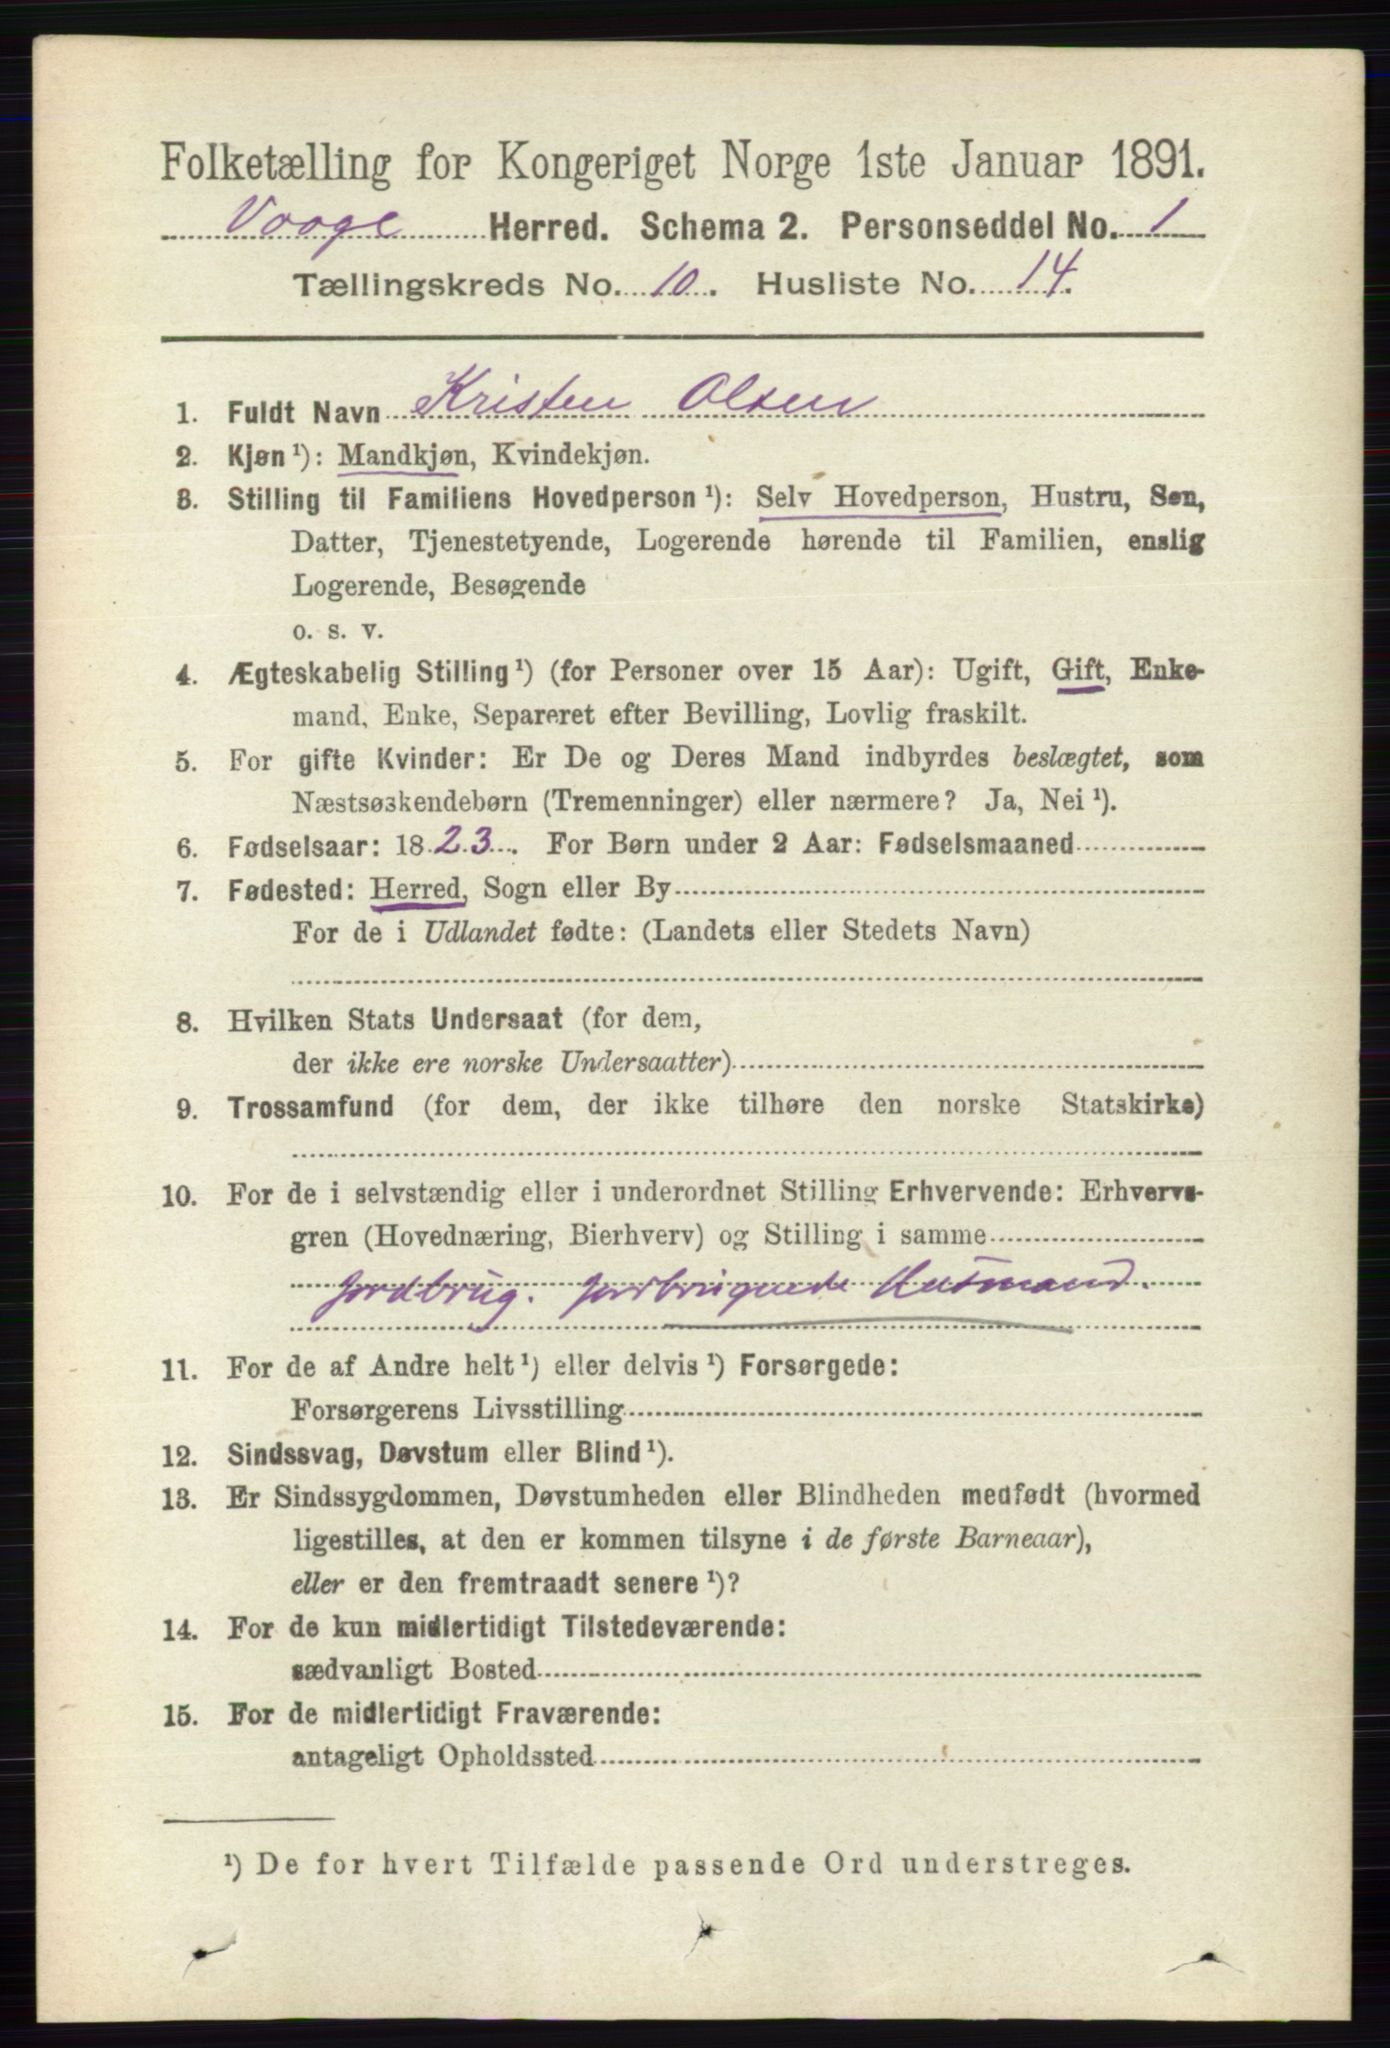 Folketælling for Kongeriget Norge 1ste Januar 1891.
Vaage Herred. Schema 2. Personseddel No. 1
Tællingskreds No. 10. Husliste No. 14.
1. Fuldt Navn Kristen Olsen
2. Kjøn ¹): Mandkjøn, Kvindekjøn.
3. Stilling til Familiens Hovedperson ¹): Selv Hovedperson, Hustru, Søn,
Datter, Tjenestetyende, Logerende hørende til Familien, enslig
Logerende, Besøgende
o. s. v.
4. Ægteskabelig Stilling ¹) (for Personer over 15 Aar): Ugift, Gift, Enke-
mand, Enke, Separeret efter Bevilling, Lovlig fraskilt.
5. For gifte Kvinder: Er De og Deres Mand indbyrdes beslægtet, som
Næstsøskendebørn (Tremenninger) eller nærmere? Ja, Nei ¹).
6. Fødselsaar: 1823. For Børn under 2 Aar: Fødselsmaaned
7. Fødested: Herred, Sogn eller By
For de i Udlandet fødte: (Landets eller Stedets Navn)
8. Hvilken Stats Undersaat (for dem,
der ikke ere norske Undersaatter)
9. Trossamfund (for dem, der ikke tilhøre den norske Statskirke)
10. For de i selvstændig eller i underordnet Stilling Erhvervende: Erhvervs-
gren (Hovednæring, Bierhverv) og Stilling i samme
Jordbrug. jordbrugende Husmand.
11. For de af Andre helt ¹) eller delvis ¹) Forsørgede:
Forsørgerens Livsstilling
12. Sindssvag, Døvstum eller Blind ¹).
13. Er Sindssygdommen, Døvstumheden eller Blindheden medfødt (hvormed
ligestilles, at den er kommen tilsyne i de første Barneaar),
eller er den fremtraadt senere ¹)?
14. For de kun midlertidigt Tilstedeværende:
sædvanligt Bosted
15. For de midlertidigt Fraværende:
antageligt Opholdssted
¹) De for hvert Tilfælde passende Ord understreges.